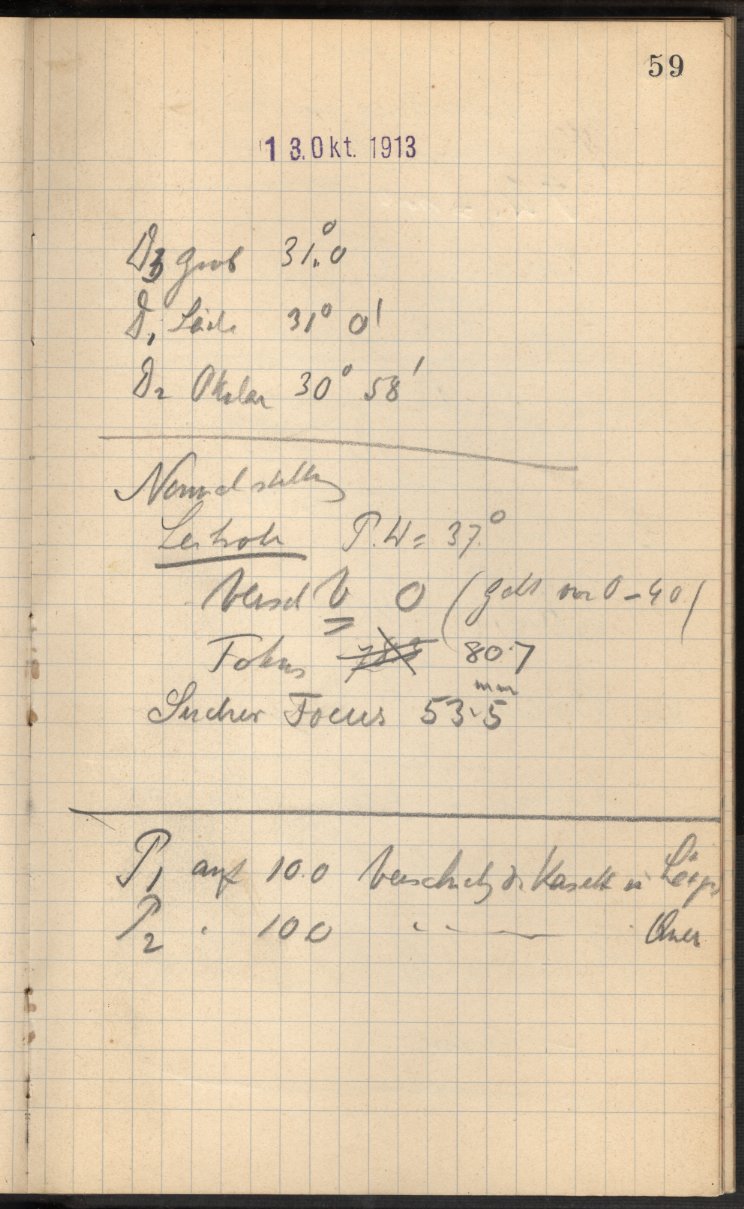 59
13. Okt. 1913
D3 grob 31.°0
D1 31° 0'
D2 Okular 30° 58'
Normalstellung
Leitrohr P.W = 37.°
Versch V 0 (geht von 0 - 40)
Fokus 80.7
Sucher Focus 53.5 mm
P1 auf 10.0 Verschiebg d. Kasette in Längs
P2 " 10.0 " — Quer